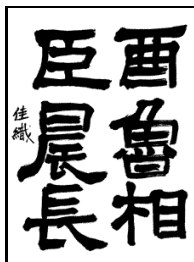 酉魯相
臣晨長
佳織